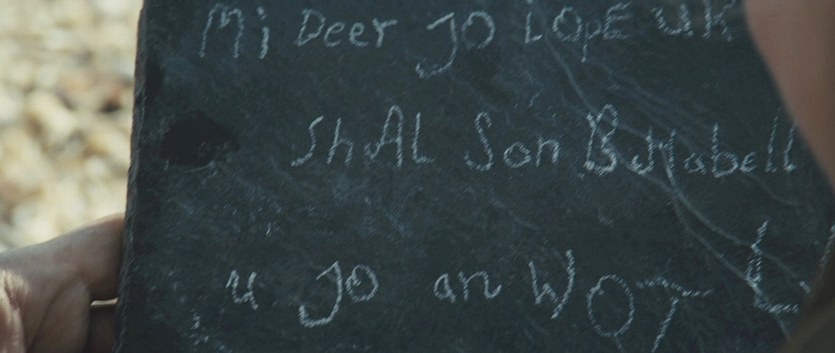 Mi Deer JO LOpE UK
ShAL Son B Habell
u JO an WOT L